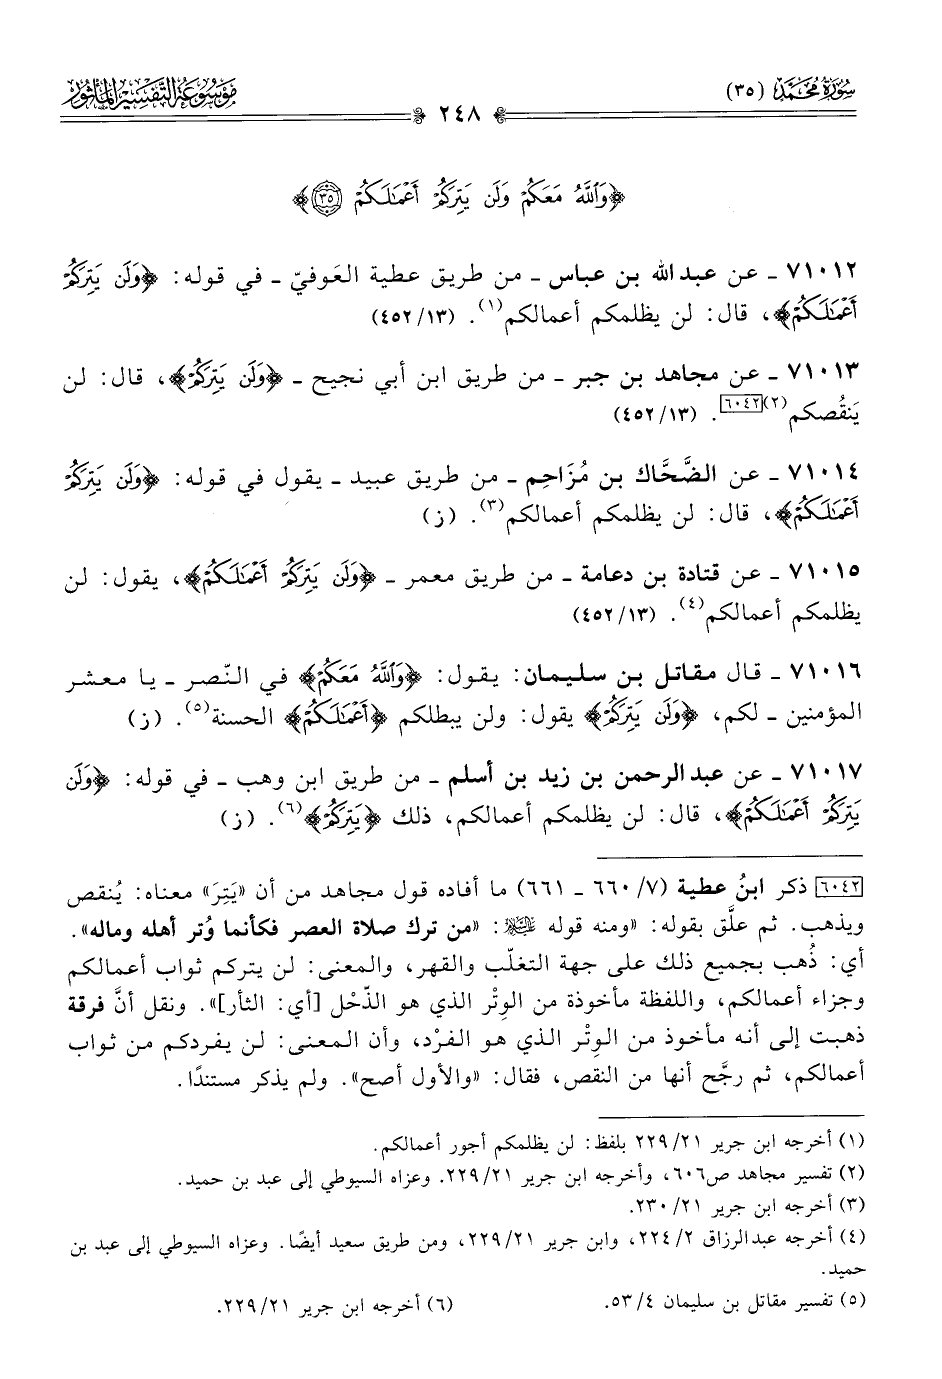 سُورَةُ مُحَمَّد (٣٥)
٢٤٨
مَوْسُوعَةُ التَّفْسِيرِ المَأْثُور
﴿وَٱللَّهُ مَعَكُمْ وَلَن يَتِرَكُمْ أَعْمَـٰلَكُمْ ٣٥﴾
٧١٠١٢ ـ عن عبد الله بن عباس ـ من طريق عطية العَوفيّ ـ في قوله: ﴿وَلَن يَتِرَكُمْ
أَعْمَـٰلَكُمْ﴾، قال: لن يظلمكم أعمالكم(١). (٤٥٢/١٣)
٧١٠١٣ ـ عن مجاهد بن جبر ـ من طريق ابن أبي نجيح ـ ﴿وَلَن يَتِرَكُمْ﴾، قال: لن
يَنقُصكم(٢)[٦٠٤٢]. (٤٥٢/١٣)
٧١٠١٤ ـ عن الضَّحَّاك بن مُزَاحِم ـ من طريق عبيد ـ يقول في قوله: ﴿وَلَن يَتِرَكُمْ
أَعْمَـٰلَكُمْ﴾، قال: لن يظلمكم أعمالكم(٣). (ز)
٧١٠١٥ ـ عن قتادة بن دعامة ـ من طريق معمر ـ ﴿وَلَن يَتِرَكُمْ أَعْمَـٰلَكُمْ﴾، يقول: لن
يظلمكم أعمالكم(٤). (٤٥٢/١٣)
٧١٠١٦ ـ قال مقاتل بن سليمان: يقول: ﴿وَٱللَّهُ مَعَكُمْ﴾ في النّصر ـ يا معشر
المؤمنين ـ لكم، ﴿وَلَن يَتِرَكُمْ﴾ يقول: ولن يبطلكم ﴿أَعْمَـٰلَكُمْ﴾ الحسنة(٥). (ز)
٧١٠١٧ ـ عن عبد الرحمن بن زيد بن أسلم ـ من طريق ابن وهب ـ في قوله: ﴿وَلَن
يَتِرَكُمْ أَعْمَـٰلَكُمْ﴾، قال: لن يظلمكم أعمالكم، ذلك ﴿يَتِرَكُمْ﴾(٦). (ز)
[٦٠٤٢] ذكر ابنُ عطية (٧/ ٦٦٠ ـ ٦٦١) ما أفاده قول مجاهد من أن «يَتِرَ» معناه: يُنقص
ويذهب. ثم علَّق بقوله: «ومنه قوله ﷺ: «من ترك صلاة العصر فكأنما وُتر أهله وماله».
أي: ذُهب بجميع ذلك على جهة التغلّب والقهر، والمعنى: لن يتركم ثواب أعمالكم
وجزاء أعمالكم، واللفظة مأخوذة من الوِتْر الذي هو الذّحْل [أي: الثأر]». ونقل أنَّ فرقة
ذهبت إلى أنه مأخوذ من الوِتْر الذي هو الفرْد، وأن المعنى: لن يفردكم من ثواب
أعمالكم، ثم رجَّح أنها من النقص، فقال: «والأول أصح». ولم يذكر مستندًا.
(١) أخرجه ابن جرير ٢٢٩/٢١ بلفظ: لن يظلمكم أجور أعمالكم.
(٢) تفسير مجاهد ص٦٠٦، وأخرجه ابن جرير ٢٢٩/٢١. وعزاه السيوطي إلى عبد بن حميد.
(٣) أخرجه ابن جرير ٢٣٠/٢١.
(٤) أخرجه عبد الرزاق ٢٢٤/٢، وابن جرير ٢٢٩/٢١، ومن طريق سعيد أيضًا. وعزاه السيوطي إلى عبد بن
حميد.
(٥) تفسير مقاتل بن سليمان ٥٣/٤. (٦) أخرجه ابن جرير ٢٢٩/٢١.